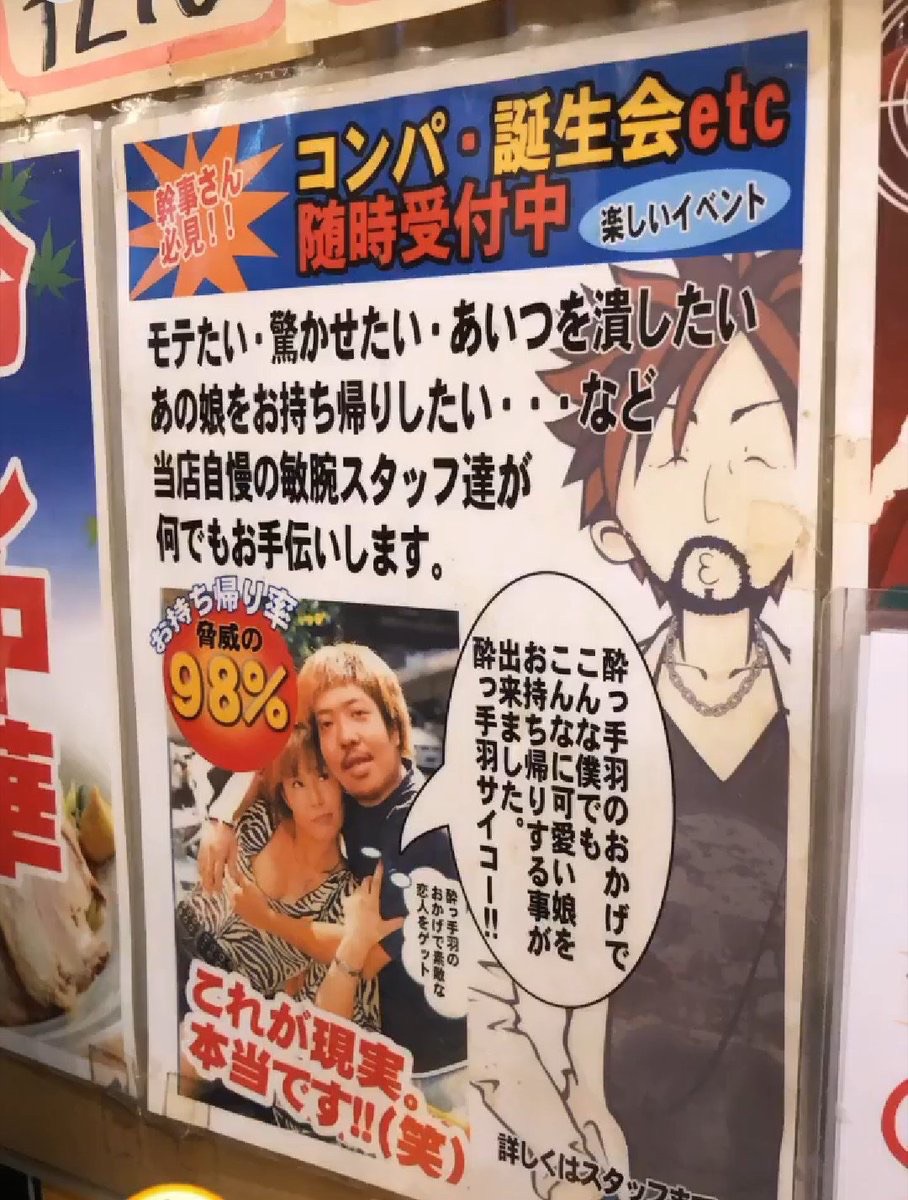 幹事さん
必見!!
コンパ・誕生会etc
随時受付中
楽しいイベント
モテたい・驚かせたい・あいつを潰したい
あの娘をお持ち帰りしたい・・・など
当店自慢の敏腕スタッフ達が
何でもお手伝いします。
お持ち帰り率
脅威の
98%
酔っ手羽のおかげで
こんな僕でも
こんなに可愛い娘を
お持ち帰りする事が
出来ました。
酔っ手羽サイコー!!
酔っ手羽の
おかげで素敵な
恋人をゲット
これが現実。
本当です!!(笑)
詳しくはスタッフ
中華